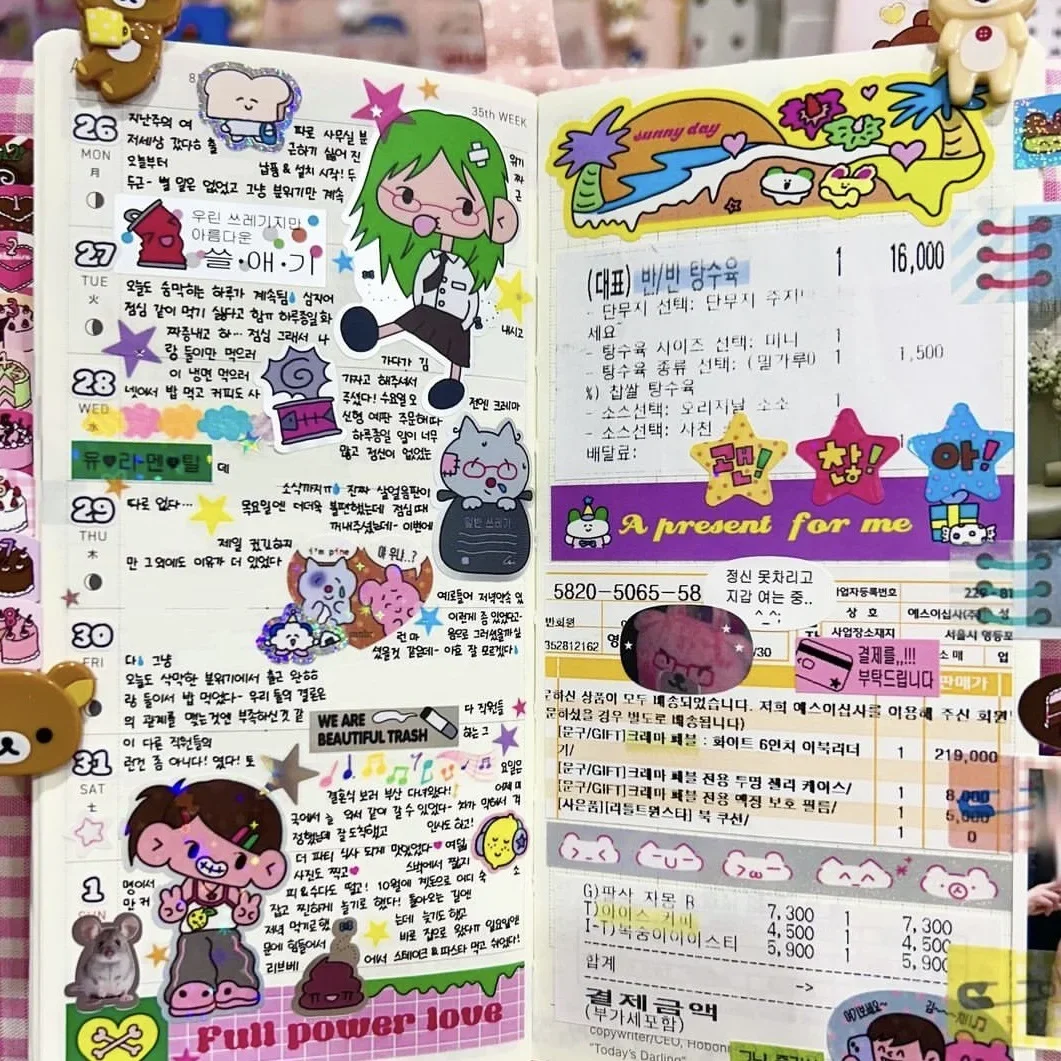 35th WEEK
26
MON
月
지난주의 여
저세상 갔다슈 출
파로 사무실 분
근하기 싫어 진
위기
오늘부터
납품 & 설치 시작! 두
두근- 별 일은 없었고 그냥 분위기만 계속
우린 쓰레기지만
아름다운
쓸·애·기
27
TUE
火
오늘도 숨막히는 하루가 계속됨 심지어
점심 같이 먹기 싫다고 함ㅠ 하루종일 화
짜증내고 하… 점심 그래서 나
랑 둘이만 먹으러
내시고
가다가 김
28
WED
水
이 냉면 먹으러
넷이서 밥 먹고 커피도 사
가자고 해주셔서
주셨다! 수요일 오
전엔 크레마
신형 예판 주문해따
하루종일 일이 너무
많고 정신이 없었는
유♥라멘♥탈
데
29
THU
木
소식까지ㅠ 진짜 살얼음판이
따로 없다…
목요일엔 더더욱 불편했는데 점심 때
꺼내주셨는데- 이번에
일반 쓰레기
제일 컸긴하지
만 그외에도 이유가 더 있었다
i'm pine
야 우냐..?
30
FRI
다 그냥
오늘도 삭막한 분위기에서 출근 완ㅎㅎ
랑 둘이서 밥 먹었다- 우리 둘의 결론은
의 관계를 맺는것엔 부족하신것 같
WE ARE
BEAUTIFUL TRASH
다 직원들
하는 그
31
SAT
土
이 다른 직원들의
런건 좀 아니다! 였다! 토
요일은
결혼식 보러 부산 다녀왔다!
국에서 늘
와서 같이 갈 수 있었다- 차가 막혀서 걱
정했는데 잘 도착했고
인사도 하고!
더 파티 식사 되게 맛있었다
사진도 찍고
피 & 수다도 떨고! 10월에 계모으로 어디 숙
소
잡고 찐하게 놀기로 했다! 돌아오는 길엔
1
SUN
저녁 먹기로 했
는데 늦기도 했고
문에 힘들어서
바로 집으로 왔다ㅠ 일요일엔
리브베
에서 스테이크 & 파스타 먹고 쉬었다!
Full power love
sunny day
(대표) 반/반 탕수육 1 16,000
- 단무지 선택: 단무지 주지
세요
- 탕수육 사이즈 선택: 미니 1
- 탕수육 종류 선택: (밀가루 1 1,500
%) 찹쌀 탕수육
- 소스선택: 오리지널 소스 1
- 소스선택: 사천
배달료:
괜! 찮! 아!
A present for me
5820-5065-58
정신 못차리고
지갑 여는 중..
^_^;
업자등록번호 229-81
상 호 예스이십사(주)
사업장소재지 서울시 영등포
352812162
/30
소 매 업
결제를,,!!!
부탁드립니다
판매가
하신 상품이 모두 배송되었습니다. 저희 예스이십사를 이용해 주신 회원
문하셨을 경우 별도로 배송됩니다)
[문구/GIFT]크레마 페블 : 화이트 6인치 이북리더
기/ 1 219,000
[문구/GIFT]크레마 페블 전용 투명 젤리 케이스/ 1 8,000
[문구/GIFT]크레마 페블 전용 액정 보호 필름/ 1 5,000
[사은품][리틀트윈스타] 북 쿠션/ 1 0
G)판사 자몽 R 7,300 1 7,300
T)아이스 커피 4,500 1 4,500
I-T)복숭아아이스티 5,900 1 5,900
합계 ->
결제금액
(부가세포함)
copywriter/CEO, Hobonichi
"Today's Darling"